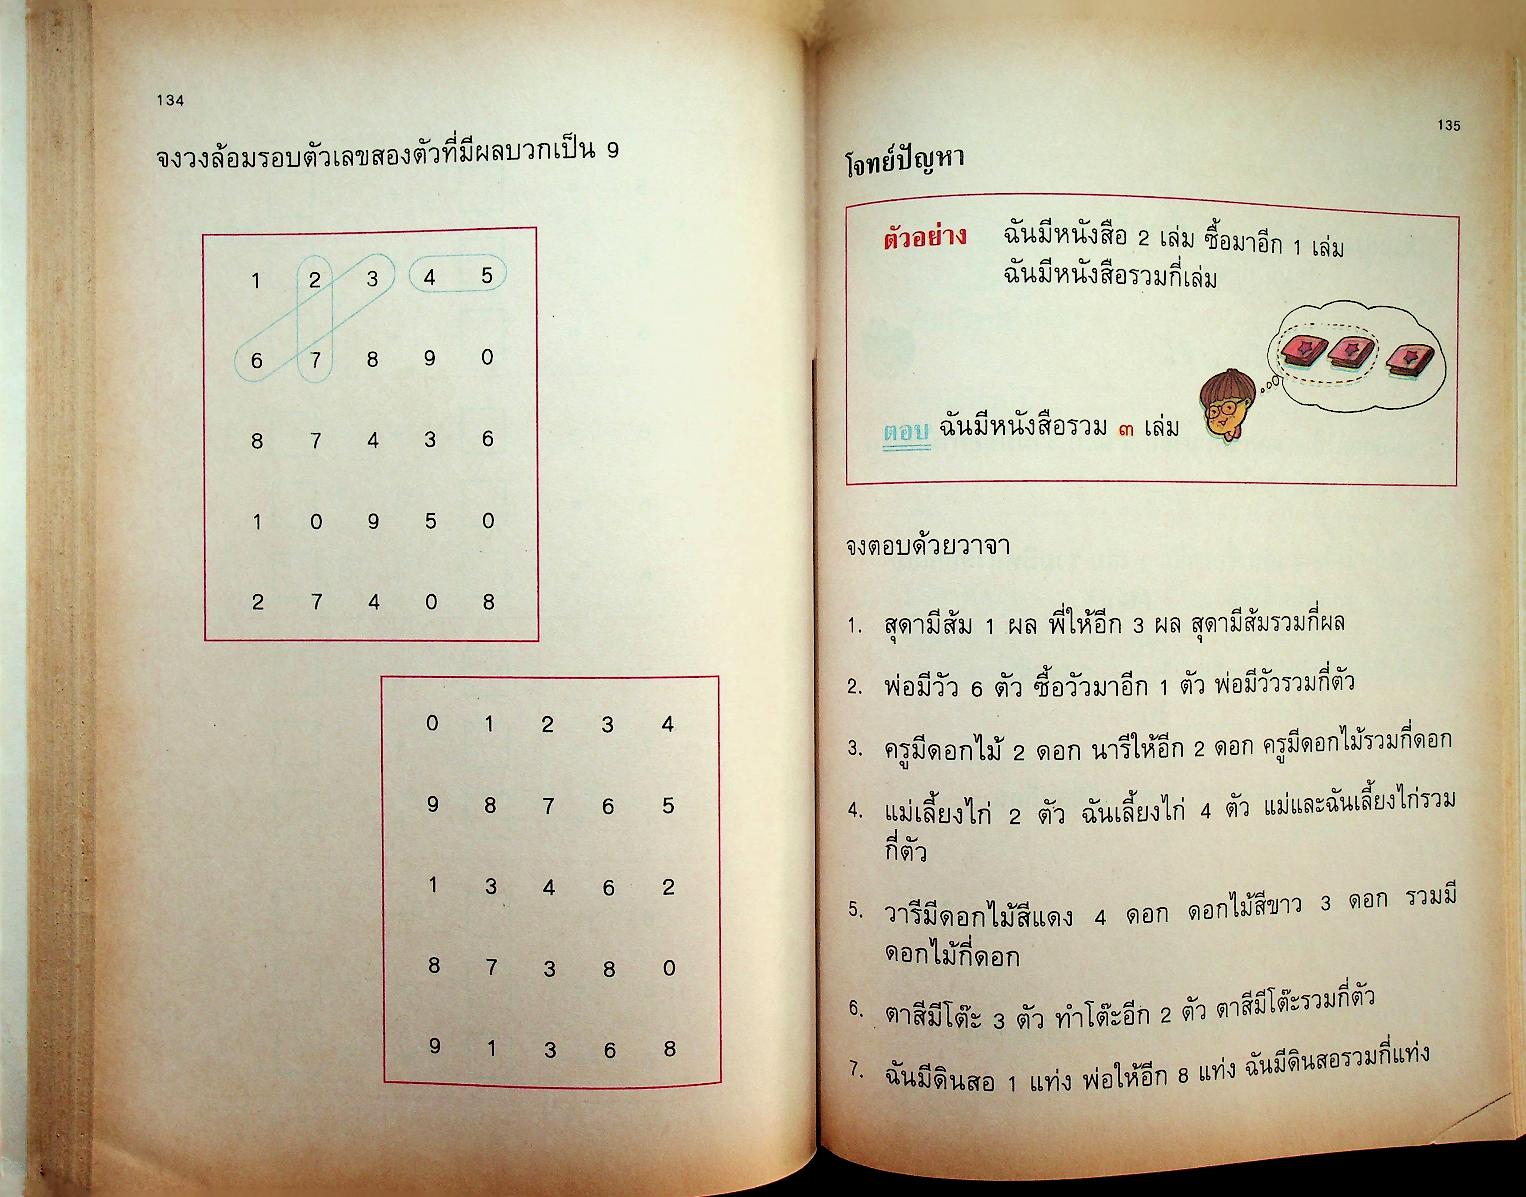 134
จงวงล้อมรอบตัวเลขสองตัวที่มีผลบวกเป็น 9
1 2 3 4 5
6 7 8 9 0
8 7 4 3 6
1 0 9 5 0
2 7 4 0 8
0 1 2 3 4
9 8 7 6 5
1 3 4 6 2
8 7 3 8 0
9 1 3 6 8
135
โจทย์ปัญหา
ตัวอย่าง ฉันมีหนังสือ 2 เล่ม ซื้อมาอีก 1 เล่ม
ฉันมีหนังสือรวมกี่เล่ม
ตอบ ฉันมีหนังสือรวม ๓ เล่ม
จงตอบด้วยวาจา
1. สุดามีส้ม 1 ผล พี่ให้อีก 3 ผล สุดามีส้มรวมกี่ผล
2. พ่อมีวัว 6 ตัว ซื้อวัวมาอีก 1 ตัว พ่อมีวัวรวมกี่ตัว
3. ครูมีดอกไม้ 2 ดอก นารีให้อีก 2 ดอก ครูมีดอกไม้รวมกี่ดอก
4. แม่เลี้ยงไก่ 2 ตัว ฉันเลี้ยงไก่ 4 ตัว แม่และฉันเลี้ยงไก่รวม
กี่ตัว
5. วารีมีดอกไม้สีแดง 4 ดอก ดอกไม้สีขาว 3 ดอก รวมมี
ดอกไม้กี่ดอก
6. ตาสีมีโต๊ะ 3 ตัว ทำโต๊ะอีก 2 ตัว ตาสีมีโต๊ะรวมกี่ตัว
7. ฉันมีดินสอ 1 แท่ง พ่อให้อีก 8 แท่ง ฉันมีดินสอรวมกี่แท่ง